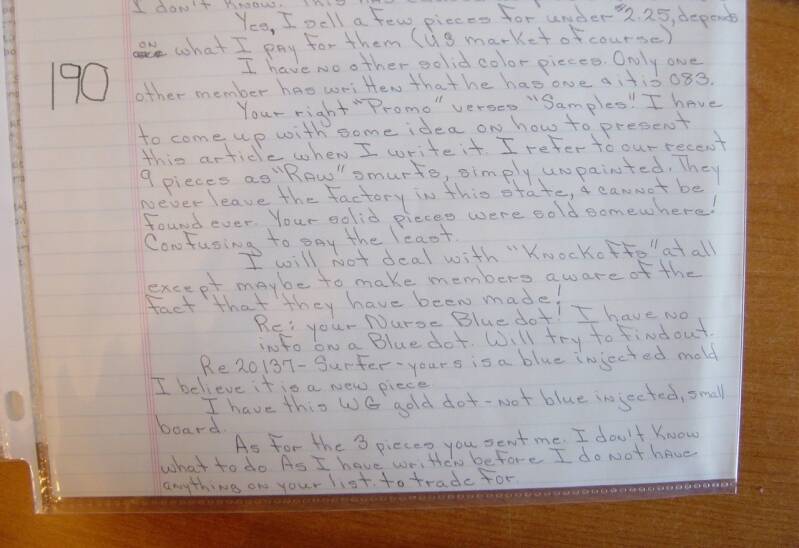 I don't know. This has
Yes, I sell a few pieces for under $2.25, depends
on what I pay for them (US market of course)
190
I have no other solid color pieces. Only one
other member has written that he has one & it is 083.
Your right "Promo" verses "Samples". I have
to come up with some idea on how to present
this article when I write it. I refer to our recent
9 pieces as "RAW" smurfs, simply unpainted. They
never leave the factory in this state, & cannot be
found ever. Your solid pieces were sold somewhere!
Confusing to say the least.
I will not deal with "Knockoffs" at all
except maybe to make members aware of the
fact that they have been made!
Re: your Nurse Blue dot! I have no
info on a Blue dot. Will try to find out.
Re 20137 - Surfer - yours is a blue injected mold
I believe it is a new piece.
I have this WG gold dot - not blue injected, small
board.
As for the 3 pieces you sent me. I don't know
what to do. As I have written before I do not have
anything on your list to trade for.